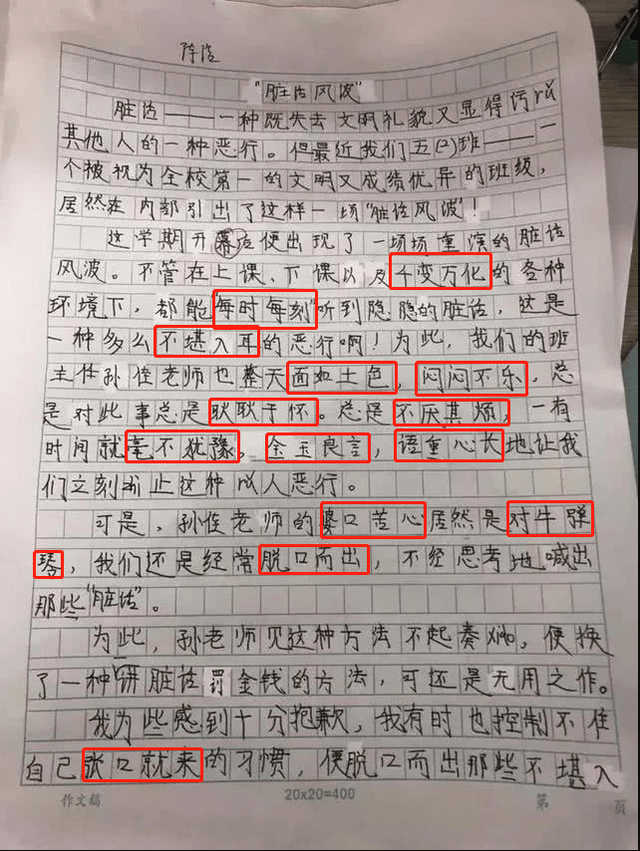 陈浩
“脏话风波”
脏话——一种既失去文明礼貌又显得污以
其他人的一种恶行。但最近我们五(2)班——一
个被视为全校第一的文明又成绩优异的班级，
居然在内部引出了这样一场“脏话风波”！
这学期开幕后便出现了一场场重演的脏话
风波。不管在上课、下课以及千变万化的各种
环境下，都能“每时每刻”听到隐隐的脏话，这是
一种多么不堪入耳的恶行啊！为此，我们的班
主任孙佳老师也整天面如土色，闷闷不乐，总
是对此事总是耿耿于怀。总是不厌其烦，一有
时间就毫不犹豫，金玉良言，语重心长地让我
们立刻断止这种以人恶行。
可是，孙佳老师的婆口苦心居然是对牛弹
琴，我们还是经常脱口而出，不经思考地喊出
那些“脏话”。
为此，孙老师见这种方法不起奏效，便换
了一种讲脏话罚金钱的方法，可还是无用之作。
我为些感到十分抱歉，我有时也控制不住
自己张口就来的习惯，便脱口而出那些不堪入
作文稿 20x20=400 第 页